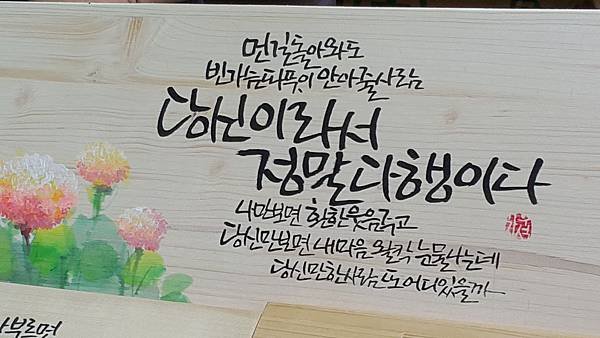 먼길돌아와도
빈가슴따뜻이 안아줄사람
당신이라서
정말다행이다
나만보면 환한웃음주고
당신만보면 내마음 왈칵 눈물나는데
당신만한사람 또 어디있을까
부르면